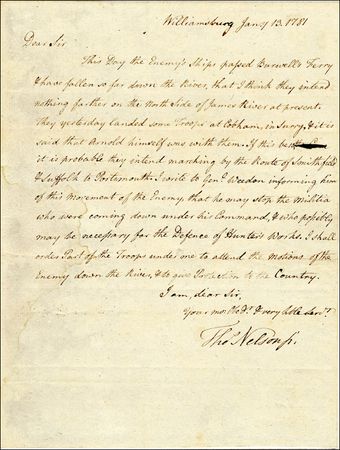 Williamsburg Jany 13. 1781
Dear Sir
This Day the Enemy's Ships passed Burwell's Ferry
& have fallen so far down the River, that I think they intend
nothing farther on the North Side of James River at present.
They yesterday landed some Troops at Cobham, in Surry, & it is
said that Arnold himself was with them. If this be
it is probable they intend marching by the Route of Smithfield
& Suffolk to Portsmouth. I write to Genl Weedon informing him
of this Movement of the Enemy, that he may stop the Militia
who were coming down under his Command, & who probably
may be necessary for the Defence of Hunter's Works. I shall
order Part of the Troops under me to attend the Motions of the
Enemy down the River, & to give Protection to the Country.
I am, dear Sir,
Your most Obt. & very hble Servt.
Thos Nelson jr.